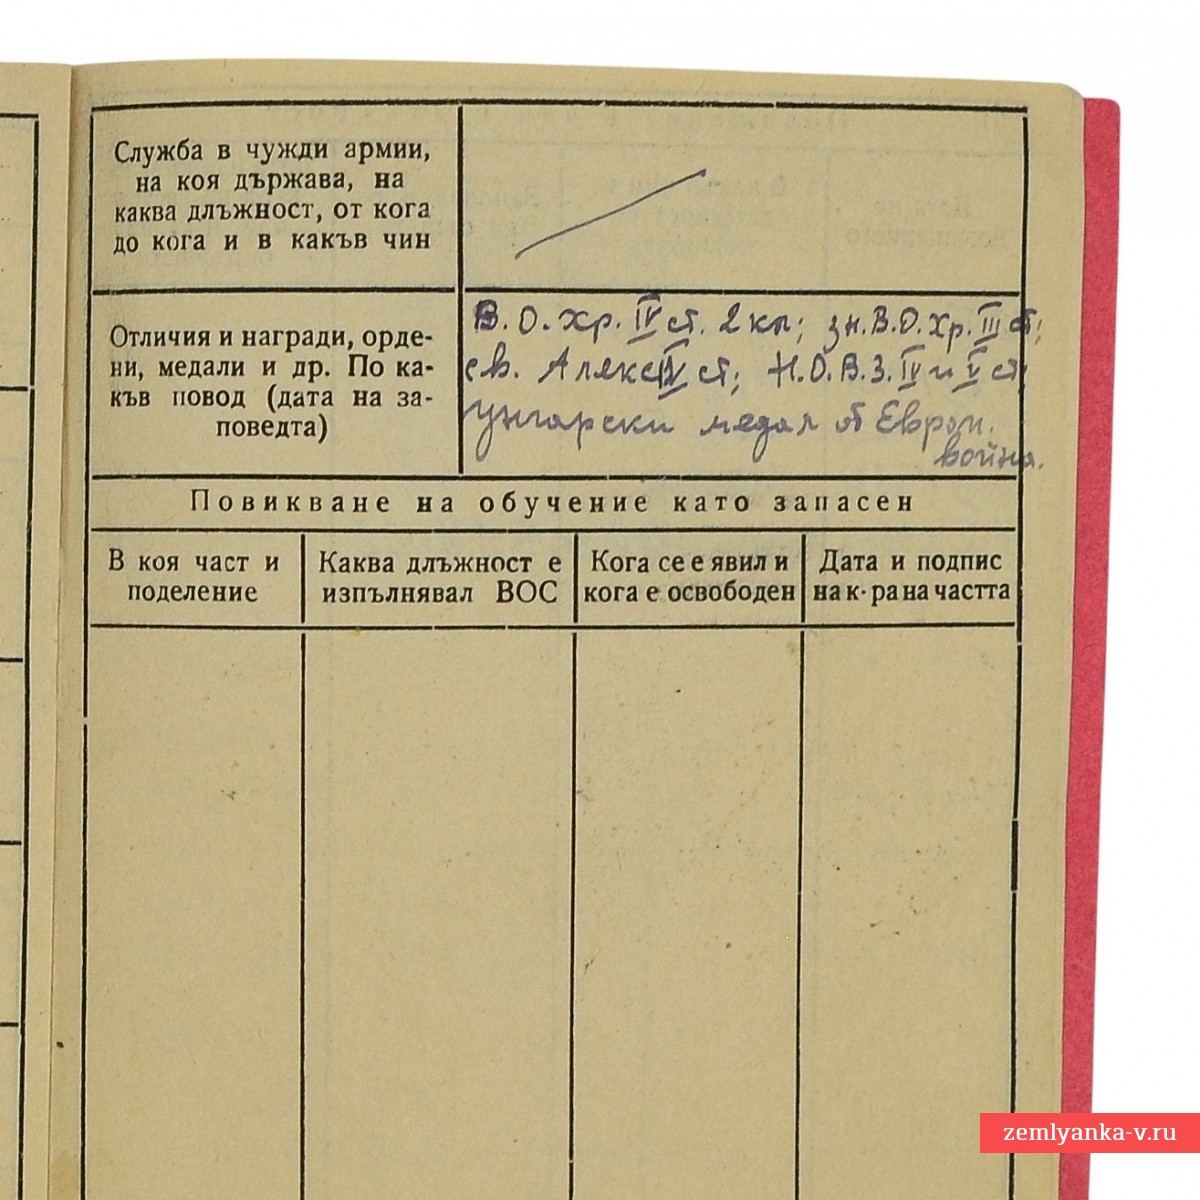 Служба в чужди армии,
на коя държава, на
каква длъжност, от кога
до кога и в какъв чин
Отличия и награди, орде-
ни, медали и др. По ка-
къв повод (дата на за-
поведта)
В.О.Хр. IV ст. 2 кл; зн.В.О.Хр. III ст;
св. Алекс IV ст; Н.О.В.З. IV и V ст
унгарски медал от Европ.
война.
Повикване на обучение като запасен
В коя част и
поделение
Каква длъжност е
изпълнявал ВОС
Кога се е явил и
кога е освободен
Дата и подпис
на к-ра на частта
zemlyanka-v.ru